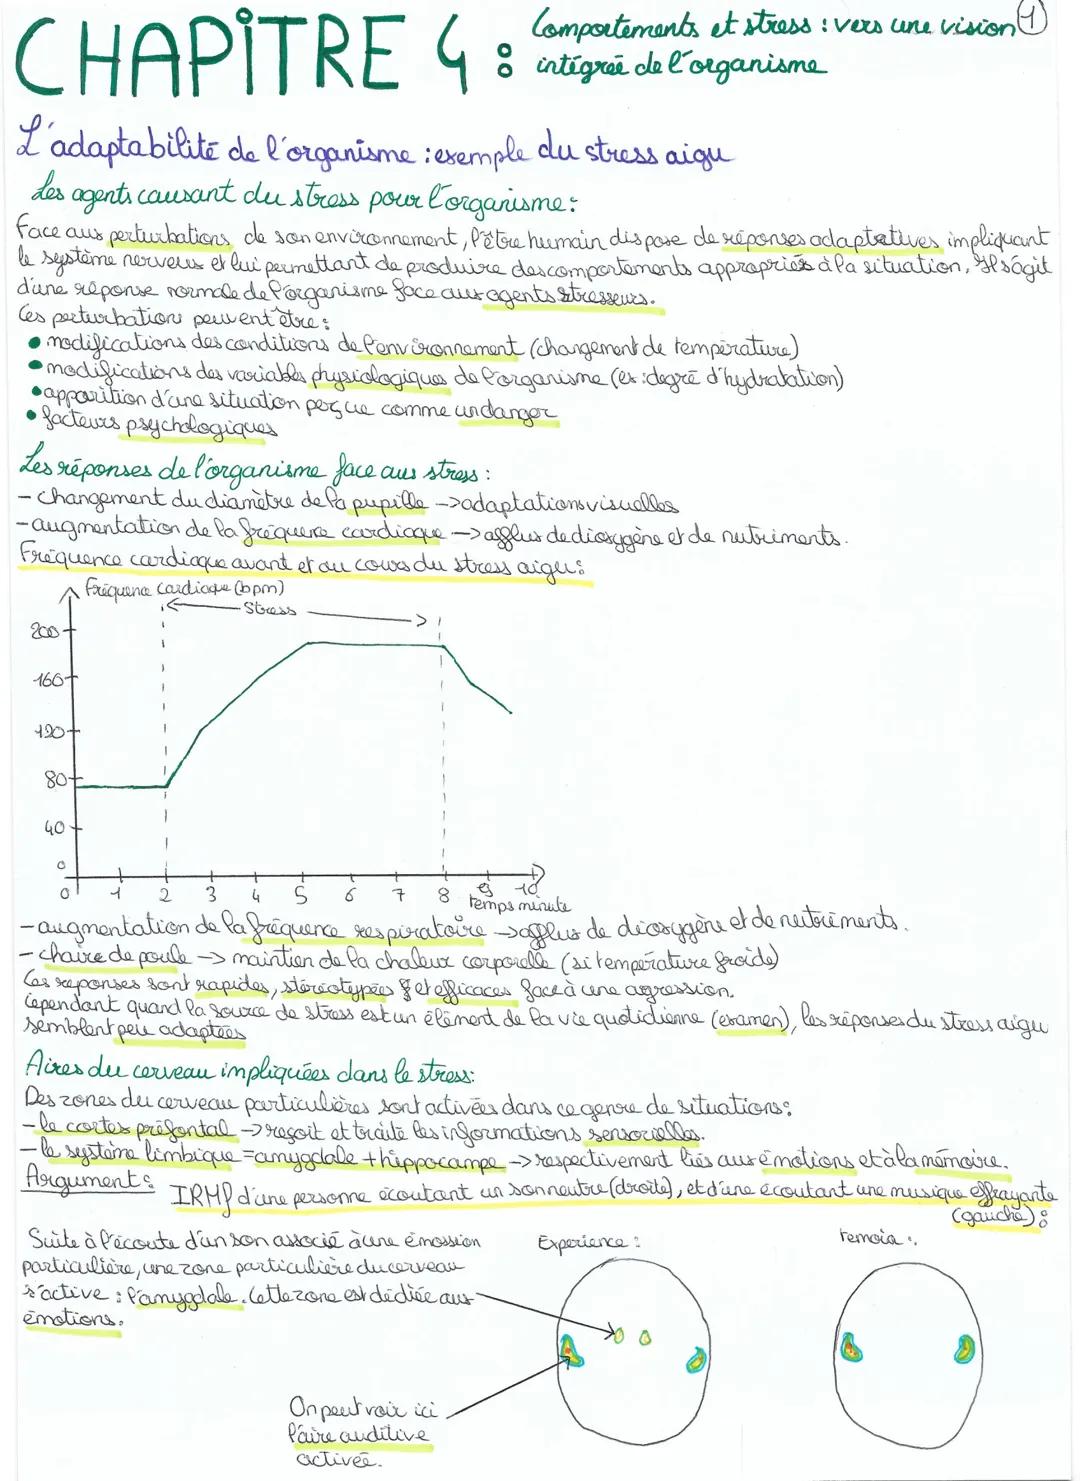 CHAPITRE 4 : Comportements et stress : vers une vision
intégrée de l'organisme
1
L'adaptabilité de l'organisme : exemple du stress aigu
Les agents causant du stress pour l'organisme :
Face aux perturbations de son environnement, l'être humain dispose de réponses adaptatives impliquant
le système nerveux et lui permettant de produire des comportements appropriés à la situation. Il s'agit
d'une réponse normale de l'organisme face aux agents stresseurs.
Ces perturbations peuvent être :
• modifications des conditions de l'environnement (changement de température)
• modifications des variables physiologiques de l'organisme (ex : degré d'hydratation)
• apparition d'une situation perçue comme un danger
• facteurs psychologiques
Les réponses de l'organisme face aux stress :
- changement du diamètre de la pupille -> adaptations visuelles
- augmentation de la fréquence cardiaque -> afflux de dioxygène et de nutriments.
Fréquence cardiaque avant et au cours du stress aigu :
Fréquence cardiaque (bpm)
Stress
200
160
120
80
40
0
0 1 2 3 4 5 6 7 8 9 10
temps minute
- augmentation de la fréquence respiratoire -> afflux de dioxygène et de nutriments.
- chaire de poule -> maintien de la chaleur corporelle (si température froide)
Ces réponses sont rapides, stéréotypées et efficaces face à une agression.
Cependant quand la source de stress est un élément de la vie quotidienne (examen), les réponses du stress aigu
semblent peu adaptées
Aires du cerveau impliquées dans le stress :
Des zones du cerveau particulières sont activées dans ce genre de situations :
- le cortex préfontal -> reçoit et traite les informations sensorielles.
- le système limbique = amygdale + hippocampe -> respectivement liés aux émotions et à la mémoire.
Argument :
IRMf d'une personne écoutant un son neutre (droite), et d'une écoutant une musique effrayante
(gauche) :
Suite à l'écoute d'un son associé à une émossion
particulière, une zone particulière du cerveau
s'active : l'amygdale. Cette zone est dédiée aux
émotions.
Expérience :
Temoin :
On peut voir ici
l'aire auditive
activée.